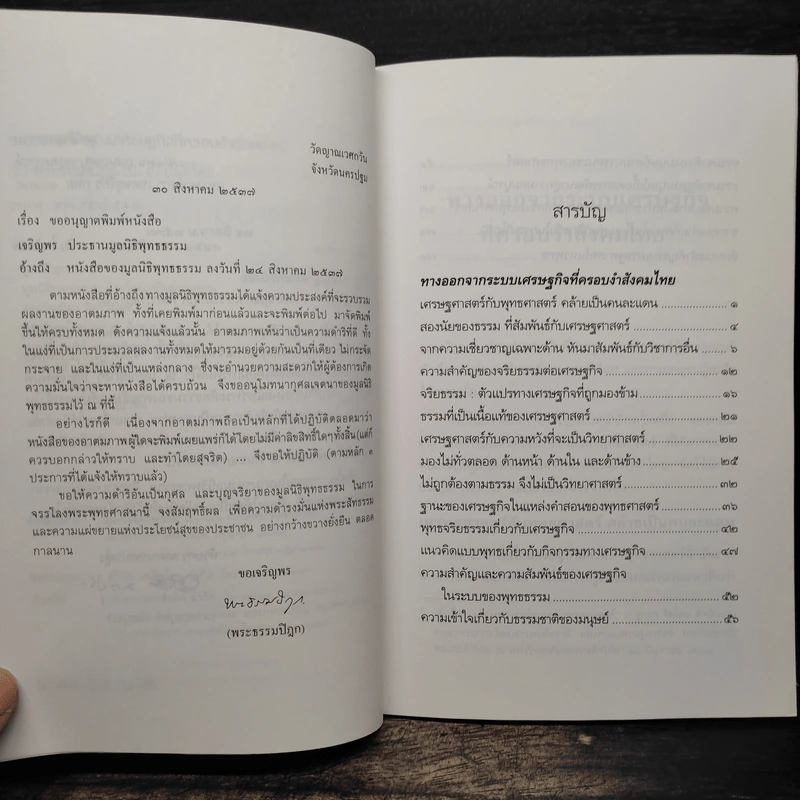 วัดญาณเวศกวัน
จังหวัดนครปฐม
๓๐ สิงหาคม ๒๕๓๗
เรื่อง ขออนุญาตพิมพ์หนังสือ
เจริญพร ประธานมูลนิธิพุทธธรรม
อ้างถึง หนังสือของมูลนิธิพุทธธรรม ลงวันที่ ๒๔ สิงหาคม ๒๕๓๗
ตามหนังสือที่อ้างถึง ทางมูลนิธิพุทธธรรมได้แจ้งความประสงค์ที่จะรวบรวม
ผลงานของอาตมภาพ ทั้งที่เคยพิมพ์มาก่อนแล้วและจะพิมพ์ต่อไป มาจัดพิมพ์
ขึ้นให้ครบทั้งหมด ดังความแจ้งแล้วนั้น อาตมภาพเห็นว่าเป็นความดำริที่ดี ทั้ง
ในแง่ที่เป็นการประมวลผลงานทั้งหมดให้มารวมอยู่ด้วยกันเป็นที่เดียว ไม่กระจัด
กระจาย และในแง่ที่เป็นแหล่งกลาง ซึ่งจะอำนวยความสะดวกให้ผู้ต้องการเกิด
ความมั่นใจว่าจะหาหนังสือได้ครบถ้วน จึงขออนุโมทนากุศลเจตนาของมูลนิธิ
พุทธธรรมไว้ ณ ที่นี้
อย่างไรก็ดี เนื่องจากอาตมภาพถือเป็นหลักที่ได้ปฏิบัติตลอดมาว่า
หนังสือของอาตมภาพผู้ใดจะพิมพ์เผยแพร่ก็ได้โดยไม่มีค่าลิขสิทธิ์ใดๆทั้งสิ้น(แต่ก็
ควรบอกกล่าวให้ทราบ และทำโดยสุจริต) ... จึงขอให้ปฏิบัติ (ตามหลัก ๓
ประการที่ได้แจ้งให้ทราบแล้ว)
ขอให้ความดำริอันเป็นกุศล และบุญจริยาของมูลนิธิพุทธธรรม ในการ
จรรโลงพระพุทธศาสนานี้ จงสัมฤทธิ์ผล เพื่อความดำรงมั่นแห่งพระสัทธรรม
และความแผ่ขยายแห่งประโยชน์สุขของประชาชน อย่างกว้างขวางยั่งยืน ตลอด
กาลนาน
ขอเจริญพร
(พระธรรมปิฎก)
สารบัญ
ทางออกจากระบบเศรษฐกิจที่ครอบงำสังคมไทย
เศรษฐศาสตร์กับพุทธศาสตร์ คล้ายเป็นคนละแดน ๑
สองนัยของธรรม ที่สัมพันธ์กับเศรษฐศาสตร์ ๔
จากความเชี่ยวชาญเฉพาะด้าน หันมาสัมพันธ์กับวิชาการอื่น ๖
ความสำคัญของจริยธรรมต่อเศรษฐกิจ ๑๒
จริยธรรม : ตัวแปรทางเศรษฐกิจที่ถูกมองข้าม ๑๖
ธรรมที่เป็นเนื้อแท้ของเศรษฐศาสตร์ ๒๑
เศรษฐศาสตร์กับความหวังที่จะเป็นวิทยาศาสตร์ ๒๒
มองไม่ทั่วตลอด ด้านหน้า ด้านใน และด้านข้าง ๒๕
ไม่ถูกต้องตามธรรม จึงไม่เป็นวิทยาศาสตร์ ๓๒
ฐานะของเศรษฐกิจในแหล่งคำสอนของพุทธศาสตร์ ๓๖
พุทธจริยธรรมเกี่ยวกับเศรษฐกิจ ๔๒
แนวคิดแบบพุทธเกี่ยวกับกิจกรรมทางเศรษฐกิจ ๔๗
ความสำคัญและความสัมพันธ์ของเศรษฐกิจ
ในระบบของพุทธธรรม ๕๒
ความเข้าใจเกี่ยวกับธรรมชาติของมนุษย์ ๕๖